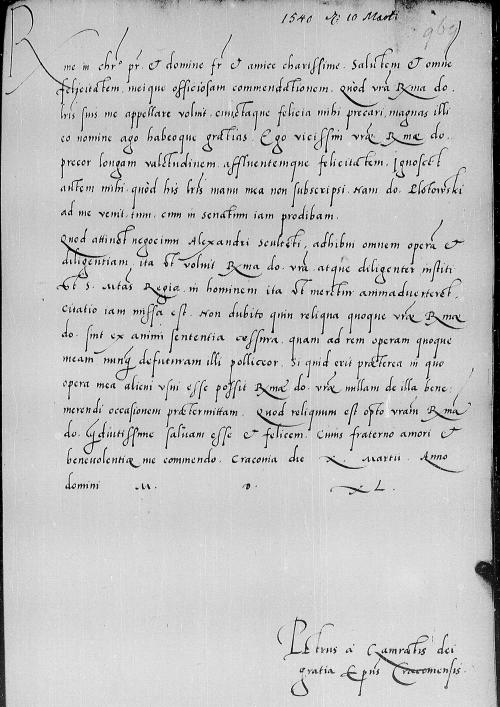 1540 10 Marti
969
Rme in chro pr. et domine fr. et amice charissime. Salutem et omnem
felicitatem, meique officiosam commendationem. Quòd vrã Rma do.
lris suis me appellare voluit, cunctaque felicia mihi precari, magnas illi
eo nomine ago habeoque gratias. Ego vicissim vrae Rmae do.
precor longam valetudinem, affluentemque felicitatem. Ignoscet
autem mihi, quòd his lris manu mea non subscripsi. Nam do. Plotowski
ad me venit, tum, cum in senatum iam prodibam.
Quod attinet negocium Alexandri Sculteti, adhibui omnem operã et
diligentiam, ita vt voluit Rma do. vrã. atque diligenter institi
vt S. Mtas Regia in hominem ita vt meretur animaduerteret.
Citatio iam missa est. Non dubito quin reliqua quoque vrae Rmae
do. sint ex animi sententia cessura, quam ad rem operam quoque
meam nunq defuturam illi polliceor. Si quid erit praeterea in quo
opera mea alieni vsui esse possit Rmae do. vrae nullam de illa bene
merendi occasionem praetermittam. Quod reliquum est opto vram Rmã
do. q diutissime saluam esse et felicem. Cuius fraterno amori et
beneuolentiae me commendo. Cracouia die X. Martii. Anno
domini M. D. XL.
Petrus à Gamratis dei
gratia Epus Cracouiensis.